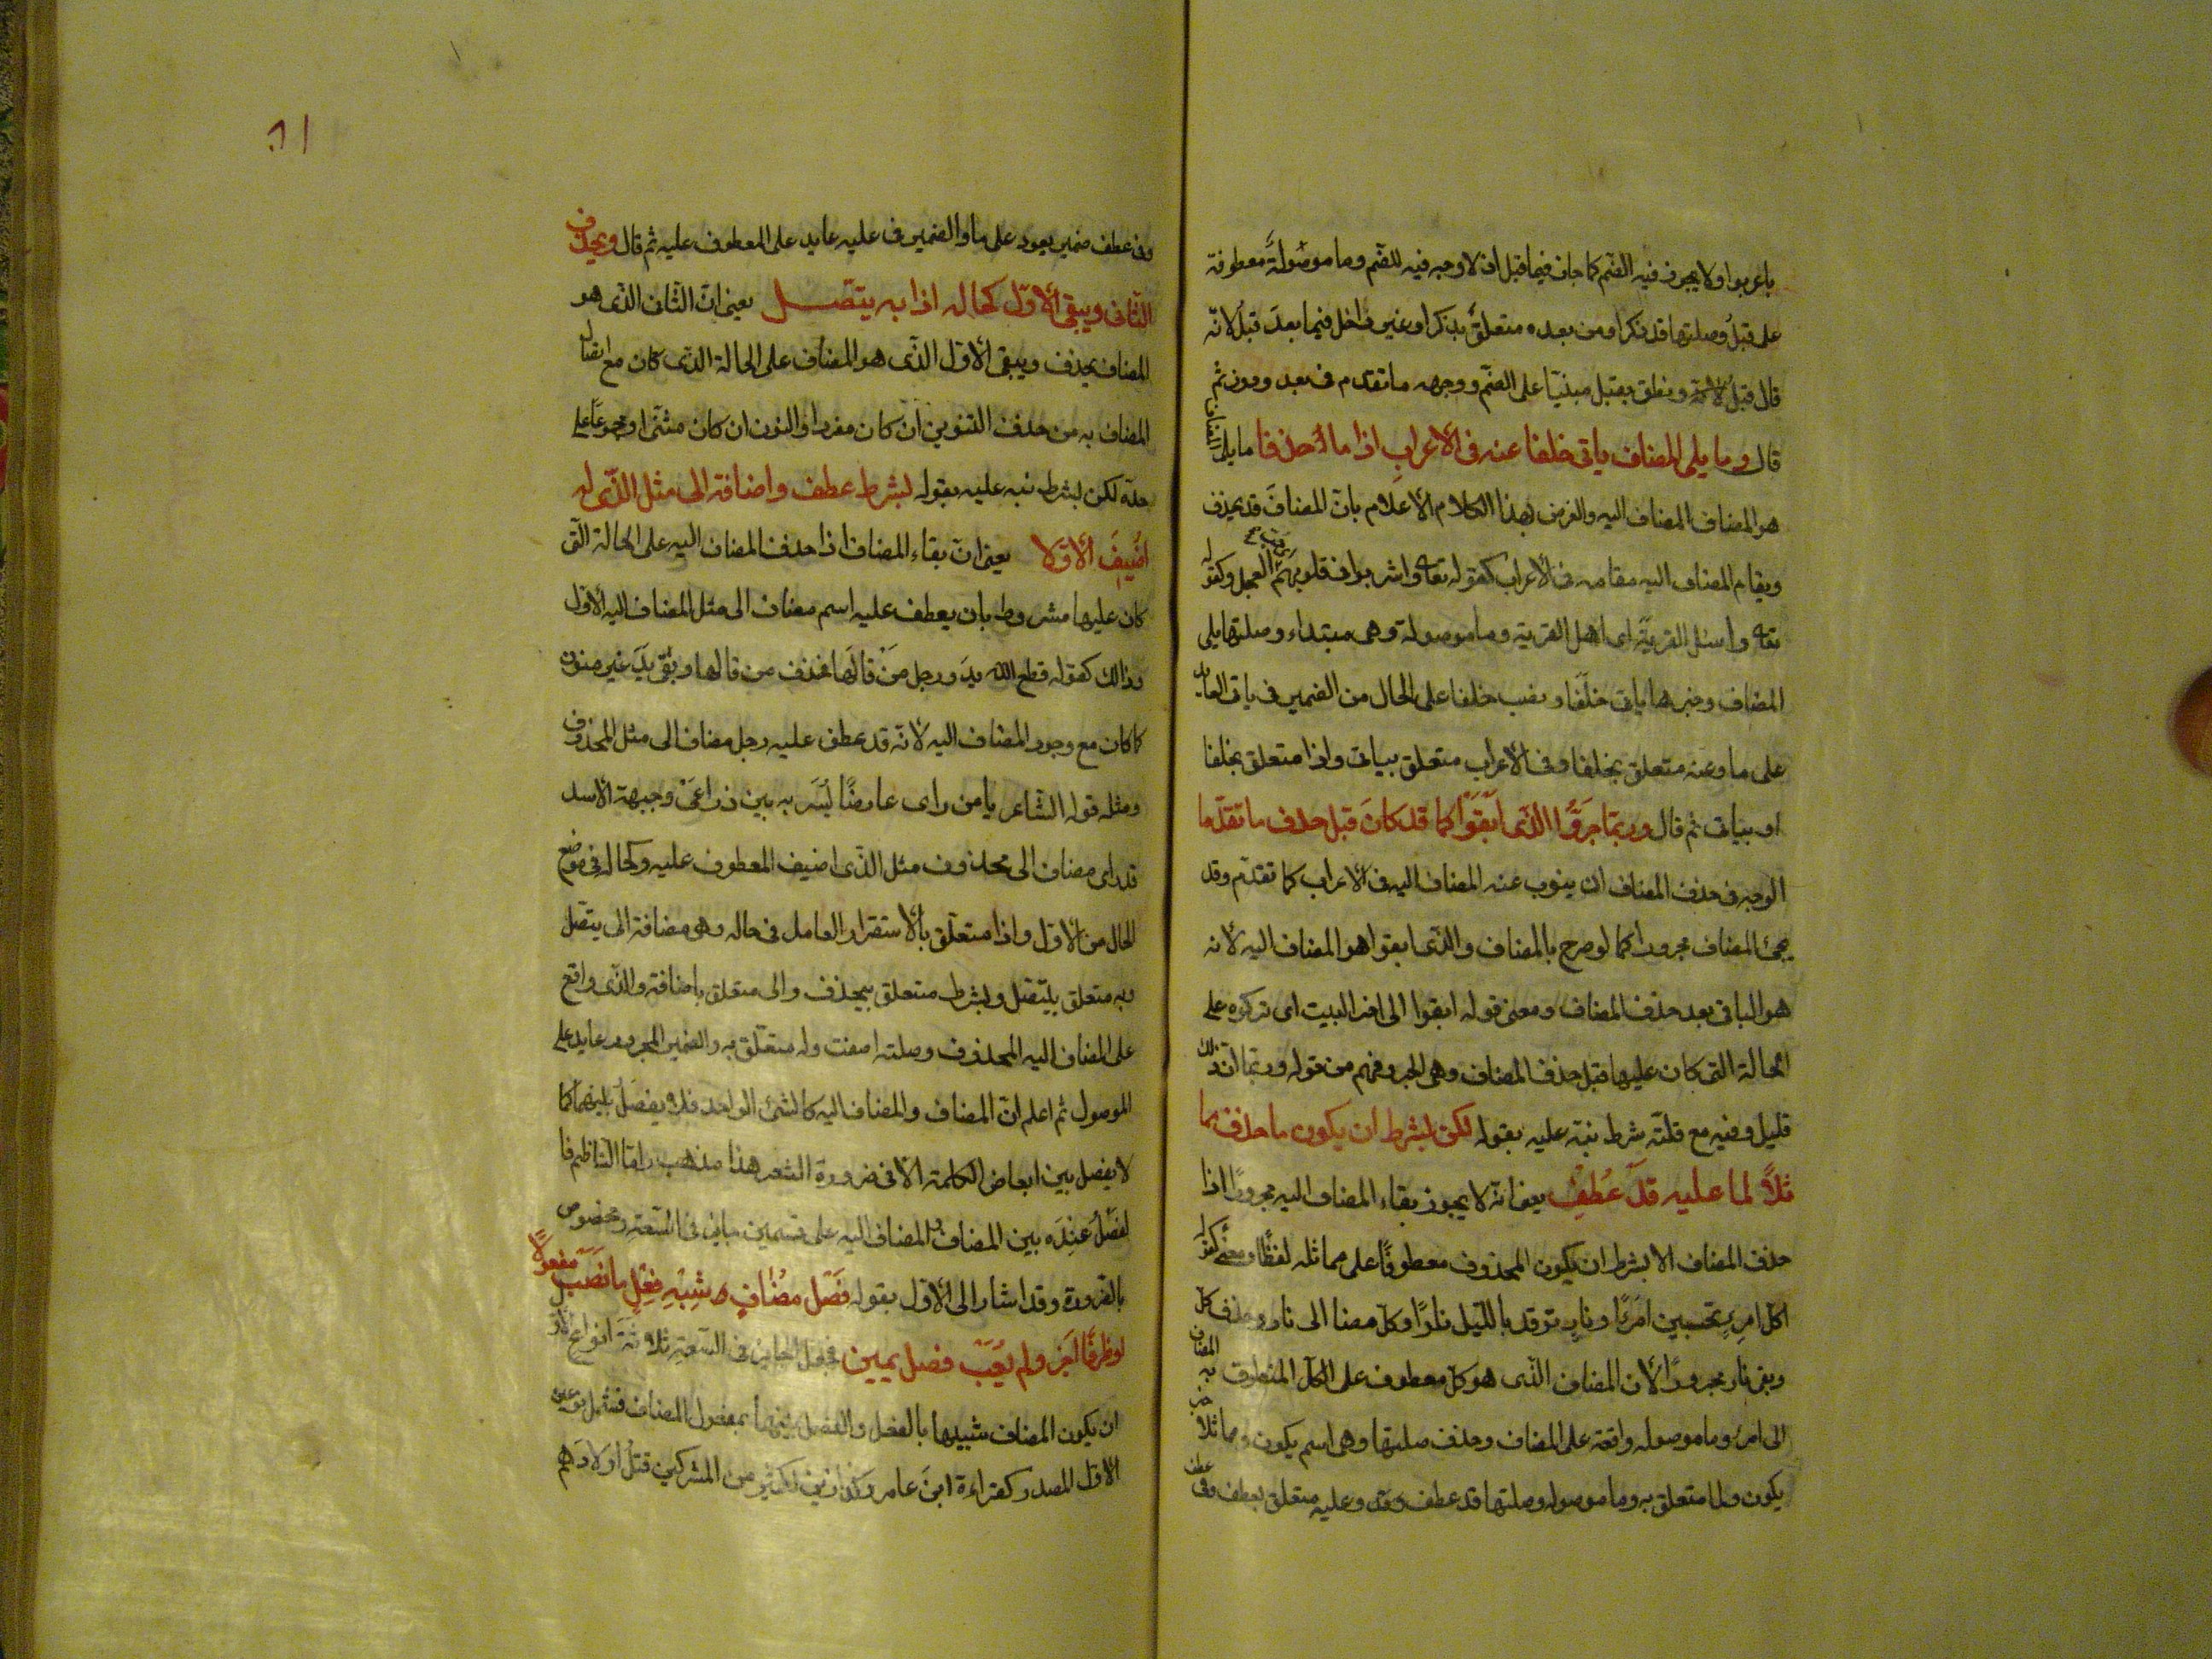 باعربوا ولا يجوز فيه الضم كما جاز فيما قبل اذ لا وجه فيه للضم وما موصولة معطوفة
على قبل وصلتها قد ذكرا ومن بعده متعلق بذكرا وغير داخل فيما بعد قبل لانه
قال قبل لامة ونطق بقبل مبنيا على الضم ووجهه ما تقدم فى بعد ودون ثم
قال وما يلى المضاف ياتى خلفا عنه فى الاعراب اذا ما حذفا ما يلى المضاف
هو المضاف المضاف اليه والغرض بهذا الكلام الاعلام بان المضاف قد يحذف
ويقام المضاف اليه مقامه فى الاعراب كقوله تعا واشربوا فى قلوبهم العجل وكقوله
تعا واسئل القرية اى اهل القرية وما موصولة وهى مبتداء وصلتها يلى
المضاف وخبرها ياتى خلفا ونصب خلفا على الحال من الضمير فى ياتى العايد
على ما وعنه متعلق بخلفا وفى الاعراب متعلق بياتى واذا متعلق بخلفا
او بياتى ثم قال وربما جروا الذى ابقوا كما قد كان قبل حذف ما تقدما
الوجه فى حذف المضاف ان ينوب عنه المضاف اليه فى الاعراب كما تقدم وقد
يجئ المضاف مجرورا كما لو صرح بالمضاف والذى ابقوا هو المضاف اليه لانه
هو الباقى بعد حذف المضاف ومعنى قوله ابقوا الى اخر البيت اى تركوه على
الحالة التى كان عليها قبل حذف المضاف وهى الجر وفهم من قوله وربما ان ذلك
قليل وفيه مع قلته شرط نبه عليه بقوله لكن بشرط ان يكون ما حذف مما
ثلا لما عليه قد عطف يعنى انه لا يجوز بقاء المضاف اليه مجرورا اذا
حذف المضاف الا بشرط ان يكون المحذوف معطوفا على مماثله لفظا ومعنى كقوله
اكل امرء تحسبين امرءا ونار توقد بالليل نارا وكل مضا الى نار وحذف كل
وبقى نار مجرورا لان المضاف الذى هو كل معطوف على الكل المنطوق به المضاف
الى امرء وما موصوله واقعة على المضاف وحذف صلتها وهى اسم يكون ومماثلا خبر
يكون ولما متعلق به وما موصوله وصلتها قد عطف وعليه متعلق بعطف وفى عطف
وفى عطف ضمير يعود على ما والضمير فى عليه عايد على المعطوف عليه ثم قال ويحذف
الثانى ويبقى الاول كحاله اذا به يتصل يعنى ان الثانى الذى هو
المضاف يحذف ويبقى الاول الذى هو المضاف على الحالة الذى كان مع اتصال
المضاف به من حذف التنوين ان كان مفردا والنون ان كان مثنى او مجموعا على
حده لكن بشرط نبه عليه بقوله بشرط عطف واضافة الى مثل الذى له
اضيف الاولا يعنى ان بقاء المضاف اذا حذف المضاف اليه على الحالة التى
كان عليها مشروط بان يعطف عليه اسم مضاف الى مثل المضاف اليه الاول
وذالك كقوله قطع الله يد ورجل من قالها فحذف من قالها وبقى يد غير منون
كما كان مع وجود المضاف اليه لانه قد عطف عليه رجل مضاف الى مثل المحذوف
ومثله قول الشاعر يا من راى عارضا يسر به بين ذراعى وجبهة الاسد
مضاف الى محذوف مثل الذى اضيف المعطوف عليه وكحاله فى موضع
الحال من الاول واذا متعلق بالاستقرار العامل فى حاله وهو مضافة الى يتصل
وبه متعلق بيتصل وبشرط متعلق بيحذف والى متعلق باضافة والذى واقع
على المضاف اليه المحذوف وصلته اضفت وله متعلق به والضمير المجرور عايد على
الموصول ثم اعلم ان المضاف والمضاف اليه كالشئ الواحد فلا يفصل بينهما كما
لا يفصل بين ابعاض الكلمة الا فى ضرورة الشعر هذا مذهب واما الناظم فا
لفصل عنده بين المضاف والمضاف اليه على قسمين جايز فى السعة ومخصوص
بالضرورة وقد اشار الى الاول بقوله فصل مضاف شبه فعل ما نصب مفعولا
او ظرفا اجز ولم يعب فصل يمين فجعل الجايز فى السعة ثلاثة انواع
ان يكون المضاف شبيها بالفعل والفصل بينهما بمفعول المضاف فشمل نوعين
الاول المصدر كقراءة ابن عامر وكذا زين لكثير من المشركين قتل اولادهم